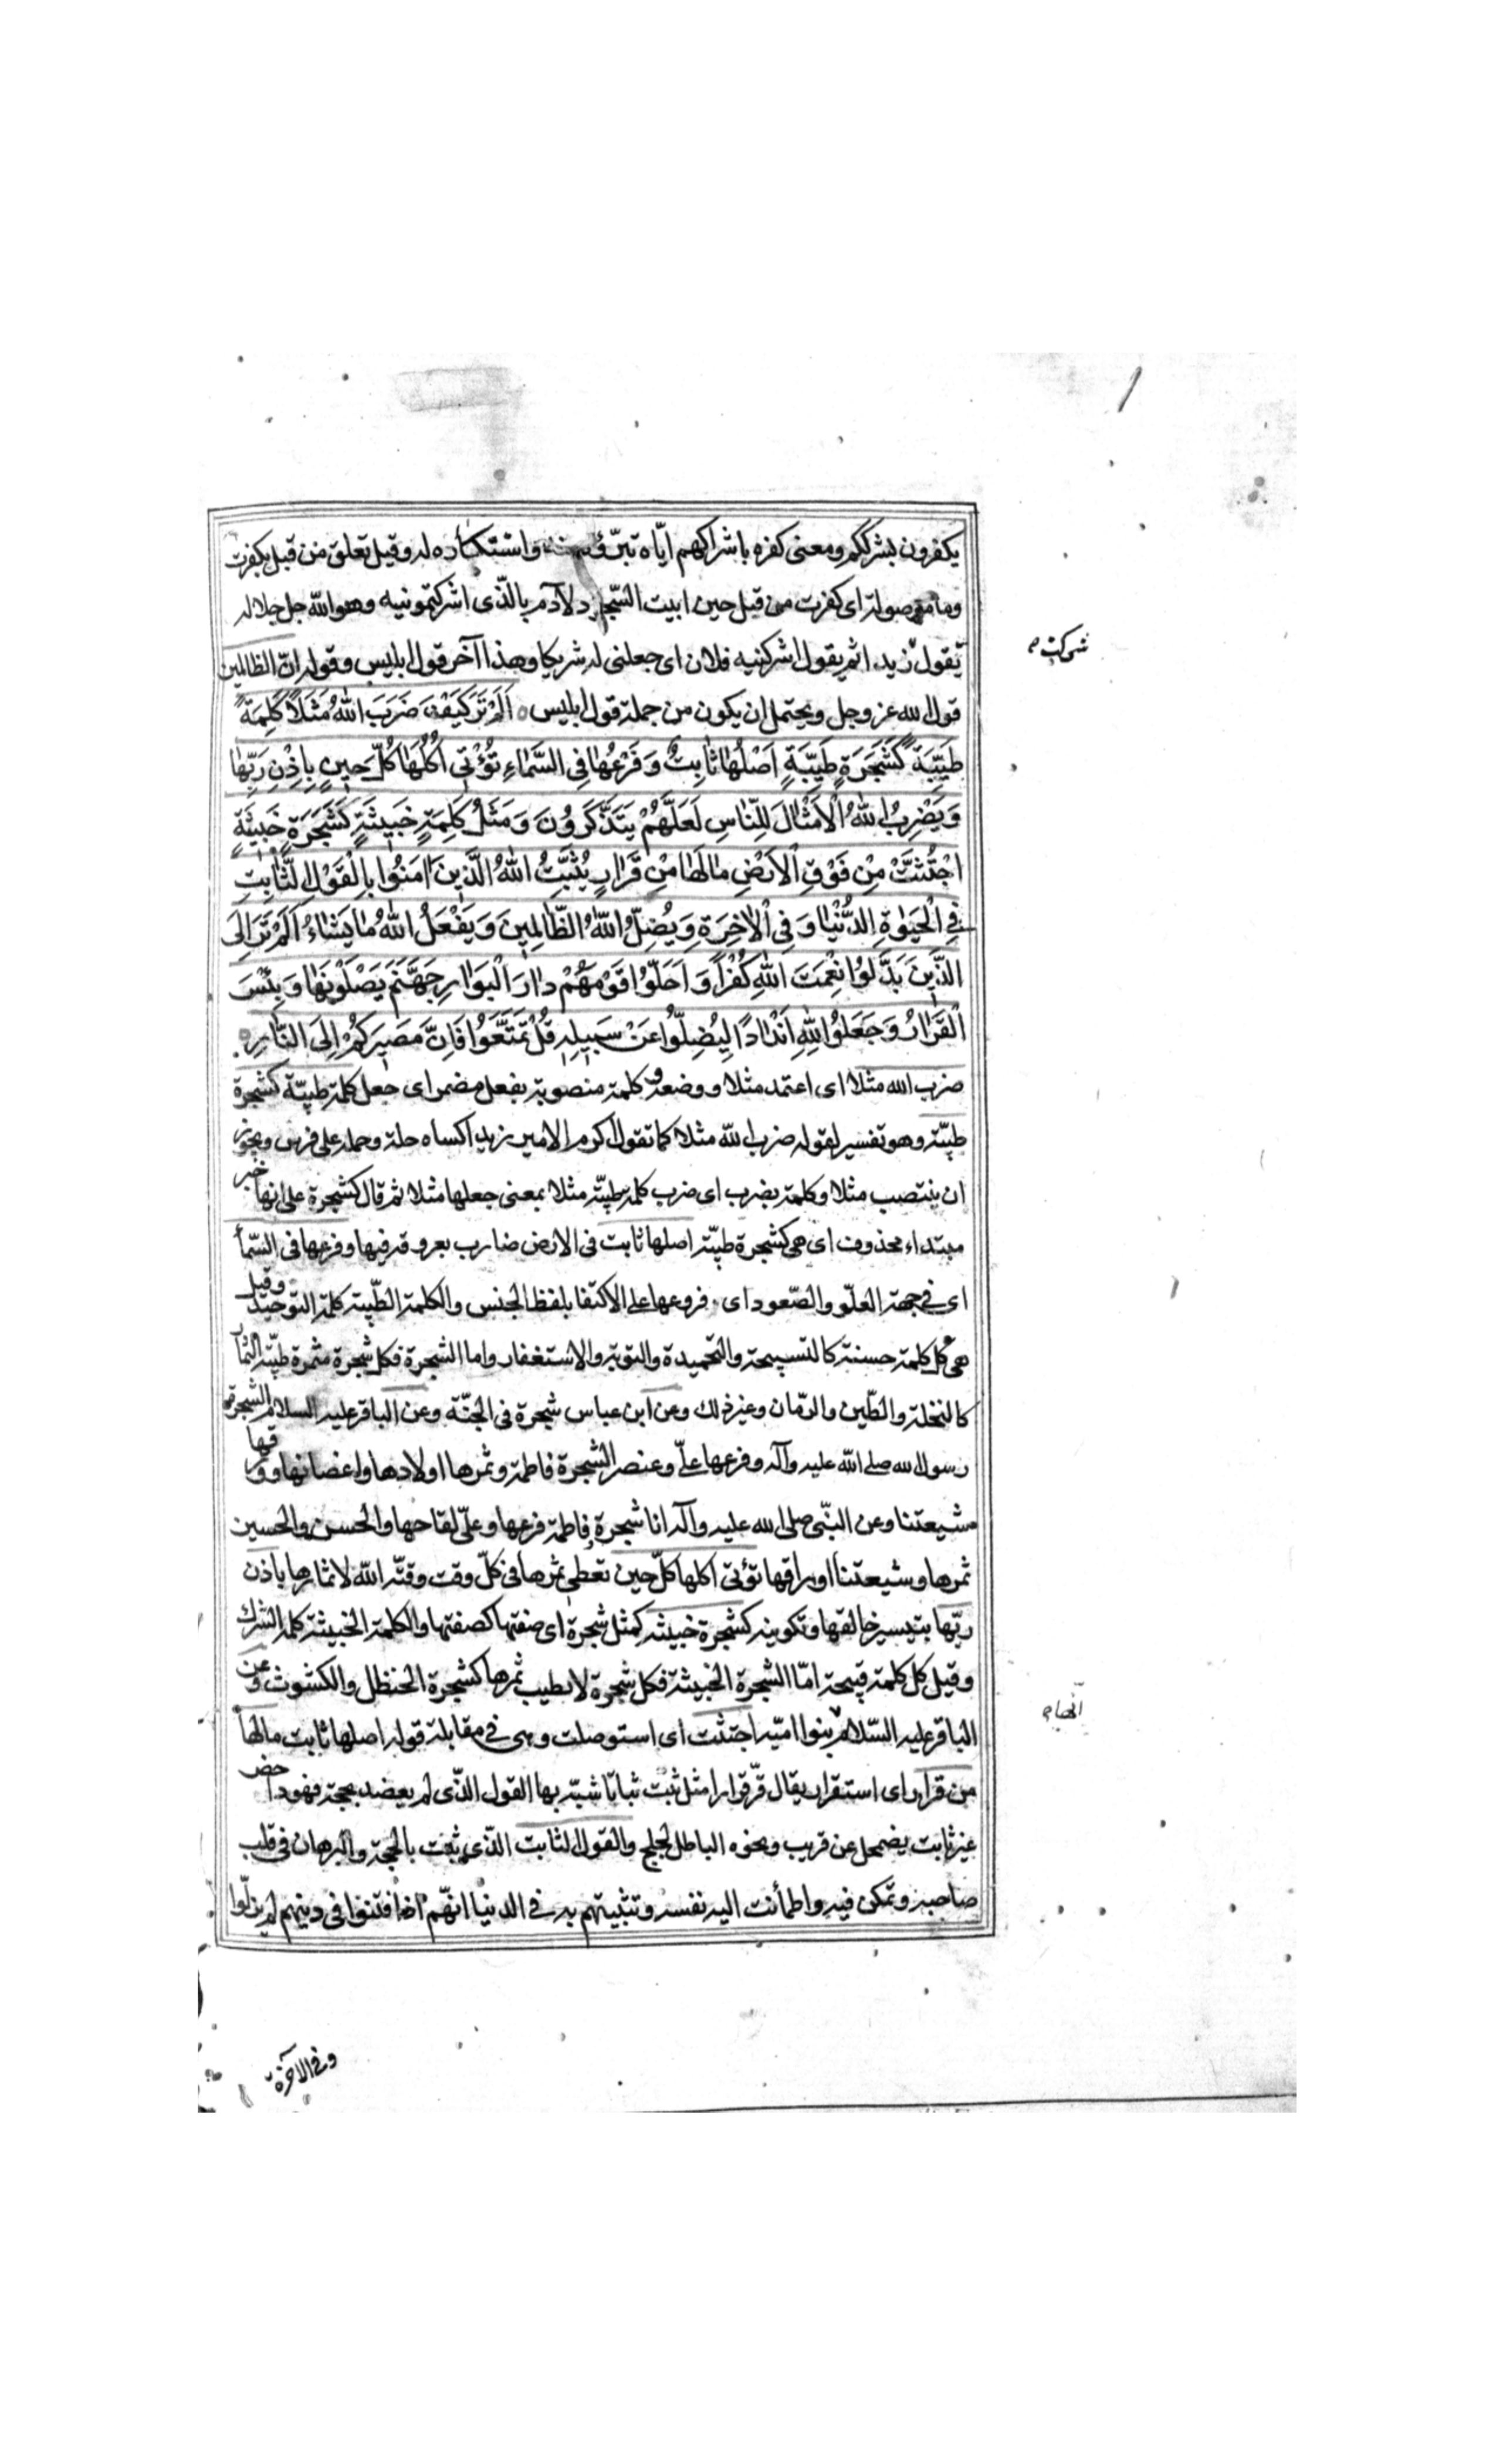 يكفرون بشرككم ومعنى كفره باشراكهم اياه تبرؤه منه واستنكاره له وقيل تعلق من قبل بكفرت
وما موصولة اى كفرت من قبل حين ابيت السجود لآدم بالذى اشركتمونيه وهو الله جل جلاله
تقول زيد اثم يقول اشركنيه فلان اى جعلنى له شريكا وهذا آخر قول ابليس وقوله ان الظالمين
شركت
قول الله عز وجل ويحتمل ان يكون من جملة قول ابليس ه اَلَمْ تَرَ كَيْفَ ضَرَبَ اللهُ مَثَلًا كَلِمَةً
طَيِّبَةً كَشَجَرَةٍ طَيِّبَةٍ اَصْلُها ثابِتٌ وَفَرْعُها فِى السَّماءِ تُؤْتى اُكُلَها كُلَّ حينٍ بِاِذْنِ رَبِّها
وَيَضْرِبُ اللهُ الْاَمْثالَ لِلنّاسِ لَعَلَّهُمْ يَتَذَكَّرُونَ وَمَثَلُ كَلِمَةٍ خَبيثَةٍ كَشَجَرَةٍ خَبيثَةٍ
اجْتُثَّتْ مِنْ فَوْقِ الْاَرْضِ مالَها مِنْ قَرارٍ يُثَبِّتُ اللهُ الَّذينَ امَنُوا بِالْقَوْلِ الثّابِتِ
فِى الْحَيٰوةِ الدُّنْيا وَفِى الْاخِرَةِ وَيُضِلُّ اللهُ الظّالِمينَ وَيَفْعَلُ اللهُ ما يَشاءُ اَلَمْ تَرَ اِلَى
الَّذينَ بَدَّلُوا نِعْمَتَ اللهِ كُفْراً وَاَحَلُّوا قَوْمَهُمْ دارَ الْبَوارِ جَهَنَّمَ يَصْلَوْنَها وَبِئْسَ
الْقَرارُ وَجَعَلُوا لِلهِ اَنْداداً لِيُضِلُّوا عَنْ سَبيلِهِ قُلْ تَمَتَّعُوا فَاِنَّ مَصيرَكُمْ اِلَى النّارِ ه
ضرب الله مثلا اى اعتمد مثلا ووضعه و كلمة منصوبة بفعل مضمر اى جعل كلمة طيبة كشجرة
طيبة وهو تفسير لقوله ضرب الله مثلا كما تقول اكرم الامير زيدا كساه حلة وحمله على فرس ويجوز
ان ينتصب مثلا وكلمة بضرب اى ضرب كلمة طيبة مثلا بمعنى جعلها مثلا ثم قال كشجرة على انها خبر
مبتداء محذوف اى هى كشجرة طيبة اصلها ثابت فى الارض ضارب بعروقه فيها وفرعها فى السماء
اى فى جهة العلو والصعود اى فروعها على الاكتفا بلفظ الجنس والكلمة الطيبة كلمة التوحيد وقيل
هى كل كلمة حسنة كالتسبيحة والتحميدة والتوبة والاستغفار واما الشجرة فكل شجرة مثمرة طيبة الثمار
كالنخلة والطين والرمان وغير ذلك وعن ابن عباس شجرة فى الجنة وعن الباقر عليه السلام الشجرة
رسول الله صلى الله عليه وآله وفرعها على وعنصر الشجرة فاطمة وثمرها اولادها واغصانها وورقها
شيعتنا وعن النبى صلى الله عليه وآله انا شجرة وفاطمة فرعها وعلى لقاحها والحسن والحسين
ثمرها وشيعتنا اوراقها تؤتى اكلها كل حين تعطى ثمرها فى كل وقت وقته الله لاثمارها باذن
ربها بتيسير خالقها وتكوينه كشجرة خبيثة كمثل شجرة اى صفتها كصفتها والكلمة الخبيثة كلمة الشرك
وقيل كل كلمة قبيحة اما الشجرة الخبيثة فكل شجرة لا يطيب ثمرها كشجرة الحنظل والكشوث وعن
الباقر عليه السلام بنوا امية اجتثت اى استوصلت وهى فى مقابلة قوله اصلها ثابت مالها
انها
من قرار اى استقرار يقال قر قرارا مثل ثبت ثباتا شبه بها القول الذى لم يعضد بحجة فهو داحض
غير ثابت يضمحل عن قريب ونحوه الباطل لجلج والقول الثابت الذى ثبت بالحجة والبرهان فى قلب
صاحبه وتمكن فيه واطمأنت اليه نفسه وتثبيتهم به فى الدنيا انهم اذا فتنوا فى دينهم لم يزلوا
وفى الآخرة